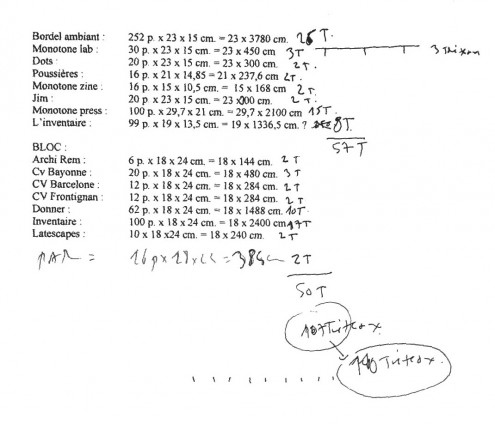 Bordel ambiant : 252 p. x 23 x 15 cm. = 23 x 3780 cm. 25 T.
Monotone lab : 30 p. x 15 x 15 cm. = 23 x 450 cm 3T
Dots : 20 p. x 23 x 15 cm. = 23 x 300 cm. 2T.
Poussières : 16 p. x 21 x 14,85 = 21 x 237,6 cm 2T.
Monotone zine : 16 p. x 15 x 10,5 cm. = 15 x 168 cm 2T.
Jim : 20 p. x 23 x 15 cm. = 23 x 300 cm. 2T.
Monotone press : 100 p. x 29,7 x 21 cm. = 29,7 x 2100 cm. 15T.
L'inventaire : 99 p. x 19 x 13,5 cm. = 19 x 1336,5 cm. ? 8T.
57T
BLOC :
Archi Rem : 6 p. x 18 x 24 cm. = 18 x 144 cm. 2T
Cv Bayonne : 20 p. x 18 x 24 cm. = 18 x 480 cm. 3T
CV Barcelone : 12 p. x 18 x 24 cm. = 18 x 284 cm. 2T
CV Frontignan : 12 p. x 18 x 24 cm. = 18 x 284 cm. 2T
Donner : 62 p. x 18 x 24 cm. = 18 x 1488 cm. 10T.
Inventaire : 100 p. x 18 x 24 cm. = 18 x 2400 cm 17T
Latescapes : 10 x 18 x24 cm. = 18 x 240 cm. 2T
2T
50T